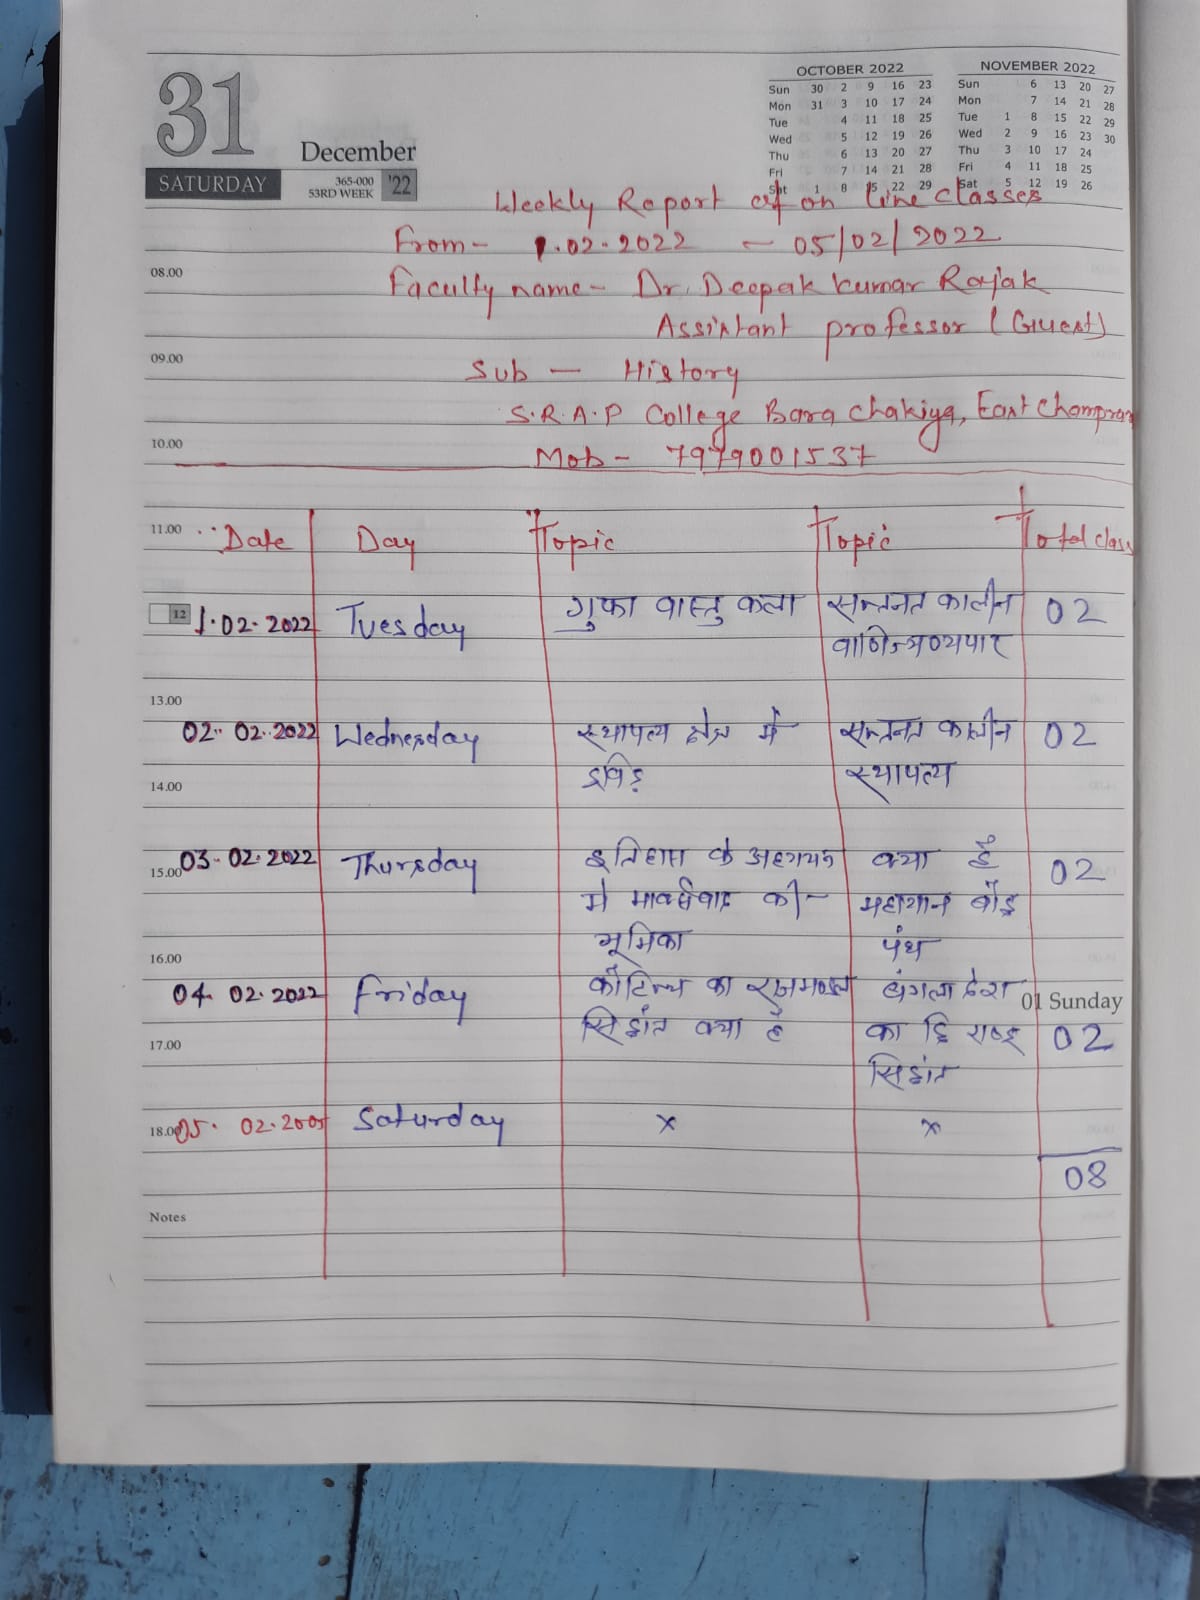 31
SATURDAY
December
365-000
53RD WEEK
'22
OCTOBER 2022
Sun 30 2 9 16 23
Mon 31 3 10 17 24
Tue 4 11 18 25
Wed 5 12 19 26
Thu 6 13 20 27
Fri 7 14 21 28
Sat 1 8 15 22 29
NOVEMBER 2022
Sun 6 13 20 27
Mon 7 14 21 28
Tue 1 8 15 22 29
Wed 2 9 16 23 30
Thu 3 10 17 24
Fri 4 11 18 25
Sat 5 12 19 26
Weekly Report of on line classes
From - 1.02.2022 - 05/02/2022
08.00
Faculty name - Dr. Deepak Kumar Rajak
Assistant professor (Guest)
09.00
Sub - History
S.R.A.P College Bara Chakiya, East Champran
10.00
Mob - 7979001537
11.00
Date Day Topic Topic Total class
12
1.02.2022 Tuesday गुफा वास्तु कला सल्तनत कालीन 02
वाणिज्य व्यपार
13.00
02.02.2022 Wednesday स्थापत्य क्षेत्र में सल्तनत कालीन 02
द्रविड़ स्थापत्य
14.00
15.00
03.02.2022 Thursday इतिहास के अध्ययन क्या है 02
में मार्क्सवाद की - महायान बौद्ध
भूमिका पंथ
16.00
04.02.2022 Friday कौटिल्य का राजमण्डल बंगला देश
01 Sunday
सिद्धांत क्या है का द्वि राष्ट्र 02
17.00
सिद्धांत
18.00
05. 02. Saturday × ×
08
Notes